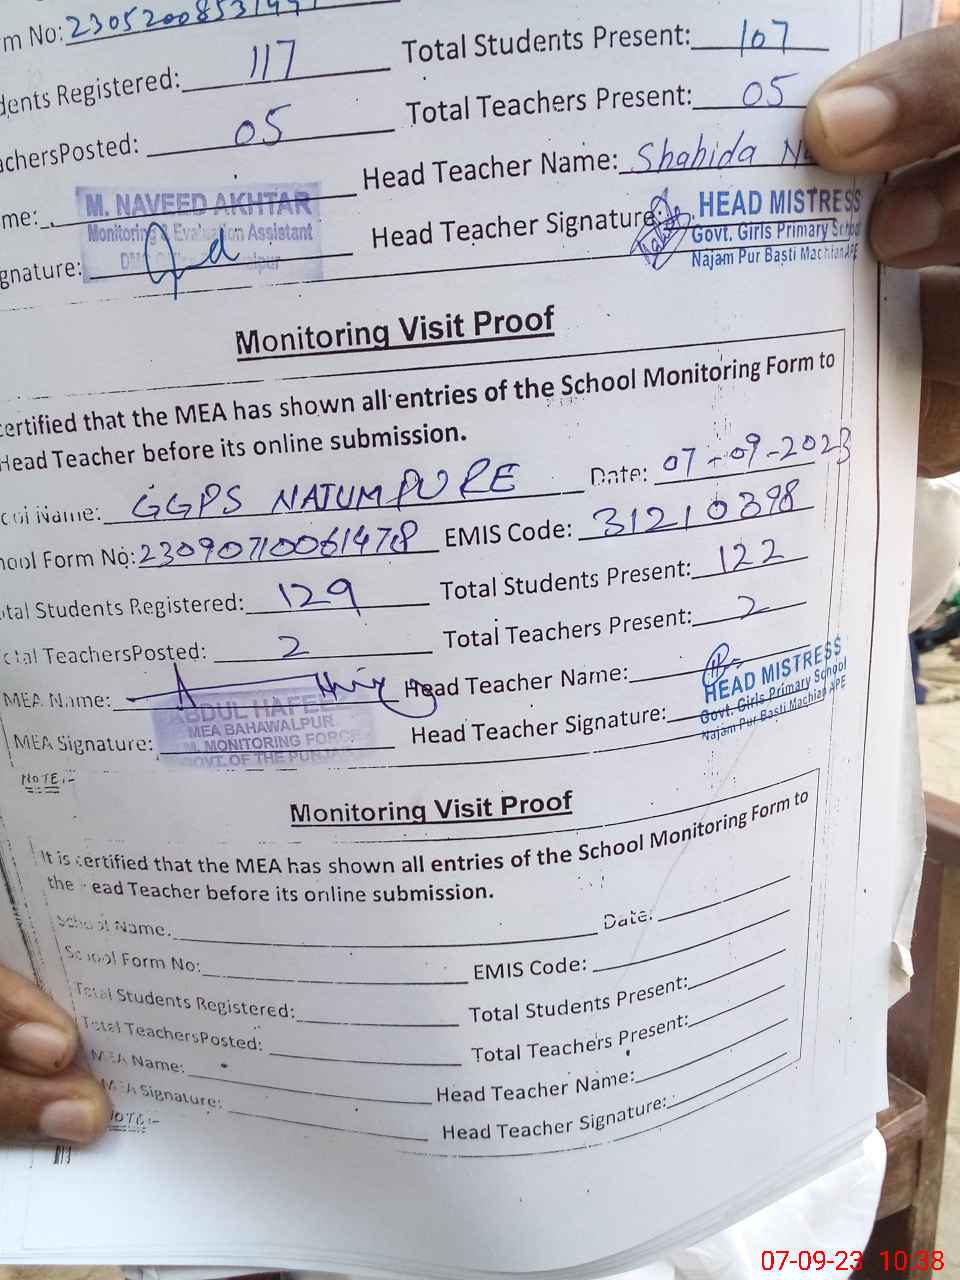 m No: 2305200853
dents Registered: 117 Total Students Present: 107
achersPosted: 05 Total Teachers Present: 05
Head Teacher Name: Shahida
me: M. NAVEED AKHTAR
Monitoring & Evaluation Assistant
gnature:
Head Teacher Signature:
HEAD MISTRESS
Govt. Girls Primary School
Najam Pur Basti Machian APE
Monitoring Visit Proof
certified that the MEA has shown all entries of the School Monitoring Form to
Head Teacher before its online submission.
ool Name: GGPS NAJUMPURE Date: 07-09-2023
hool Form No: 23090710061478 EMIS Code: 31210398
otal Students Registered: 129 Total Students Present: 122
otal TeachersPosted: 2 Total Teachers Present: 2
MEA Name: Head Teacher Name:
ABDUL HAFEE
MEA BAHAWALPUR
M. MONITORING FORCE
GOVT. OF THE PUNJA
MEA Signature: Head Teacher Signature:
HEAD MISTRESS
Govt. Girls Primary School
Najam Pur Basti Machian APE
NOTE:-
Monitoring Visit Proof
It is certified that the MEA has shown all entries of the School Monitoring Form to
the ead Teacher before its online submission.
School Name. Date:
School Form No: EMIS Code:
Total Students Registered: Total Students Present:
Total TeachersPosted: Total Teachers Present:
MEA Name: Head Teacher Name:
MEA Signature: Head Teacher Signature:
NOTE:-
07-09-23 10:38